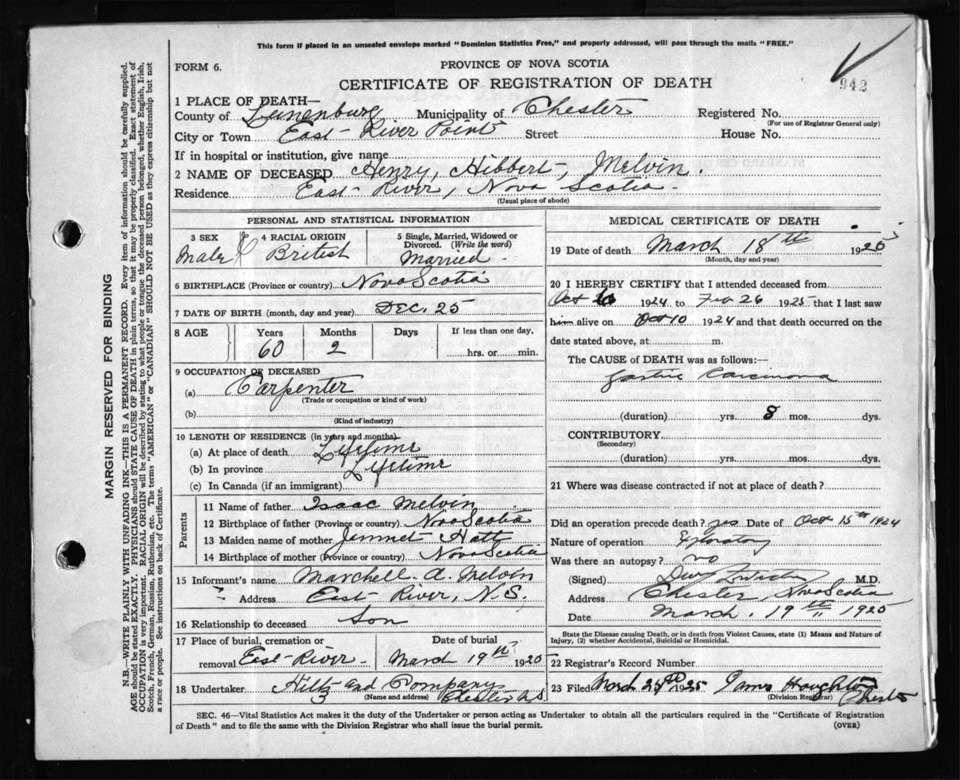 This form if placed in an unsealed envelope marked "Dominion Statistics Free," and properly addressed, will pass through the mails "FREE."
FORM 6.
PROVINCE OF NOVA SCOTIA
CERTIFICATE OF REGISTRATION OF DEATH
942
1 PLACE OF DEATH—
County of Lunenburg Municipality of Chester Registered No.
(For use of Registrar General only)
City or Town East River Point Street House No.
If in hospital or institution, give name
2 NAME OF DECEASED Henry, Hibbert, Melvin.
Residence East River, Nova Scotia
(Usual place of abode)
PERSONAL AND STATISTICAL INFORMATION
3 SEX 4 RACIAL ORIGIN 5 Single, Married, Widowed or Divorced. (Write the word)
Male British Married
6 BIRTHPLACE (Province or country) Nova Scotia
7 DATE OF BIRTH (month, day and year) Dec. 25
8 AGE Years Months Days If less than one day,
60 2 hrs. or min.
9 OCCUPATION OF DECEASED
(a) Carpenter
(Trade or occupation or kind of work)
(b)
(Kind of industry)
10 LENGTH OF RESIDENCE (in years and months)
(a) At place of death Lifetime
(b) In province Lifetime
(c) In Canada (if an immigrant)
Parents
11 Name of father Isaac Melvin
12 Birthplace of father (Province or country) Nova Scotia
13 Maiden name of mother Jemmet Hatt
14 Birthplace of mother (Province or country) Nova Scotia
15 Informant's name Marchell A. Melvin
Address East River, N.S.
16 Relationship to deceased Son
17 Place of burial, cremation or removal East River Date of burial March 19th 1925
18 Undertaker Hiltz and Company
(Name and address) Chester N.S.
MEDICAL CERTIFICATE OF DEATH
19 Date of death March 18th 1925
(Month, day and year)
20 I HEREBY CERTIFY that I attended deceased from
Oct 1924 to Feb 26 1925 that I last saw
him alive on Oct 10 1924 and that death occurred on the
date stated above, at m.
The CAUSE of DEATH was as follows:—
Gastric Carcinoma
(duration) yrs. 8 mos. dys.
CONTRIBUTORY
(Secondary)
(duration) yrs. mos. dys.
21 Where was disease contracted if not at place of death?
Did an operation precede death? yes Date of Oct 15th 1924
Nature of operation Exploratory
Was there an autopsy? no
(Signed) M.D.
Address Chester, Nova Scotia
Date March, 19th 1925
State the Disease causing Death, or in death from Violent Causes, state (1) Means and Nature of
Injury, (2) whether Accidental, Suicidal or Homicidal.
22 Registrar's Record Number
23 Filed March 1925
(Division Registrar) Chester
SEC. 46—Vital Statistics Act makes it the duty of the Undertaker or person acting as Undertaker to obtain all the particulars required in the "Certificate of Registration
of Death" and to file the same with the Division Registrar who shall issue the burial permit.
(OVER)
MARGIN RESERVED FOR BINDING
N.B.—WRITE PLAINLY WITH UNFADING INK—THIS IS A PERMANENT RECORD. Every item of information should be carefully supplied.
AGE should be stated EXACTLY. PHYSICIANS should STATE CAUSE OF DEATH in plain terms, so that it may be properly classified. Exact statement of
OCCUPATION is very important. RACIAL ORIGIN will be described by stating to what people or tongue the deceased person belonged, whether English, Irish,
Scotch, French, German, Russian, Ruthenian, etc. The terms "AMERICAN" or "CANADIAN" SHOULD NOT BE USED as they express citizenship but not
a race or people. See instructions on back of Certificate.